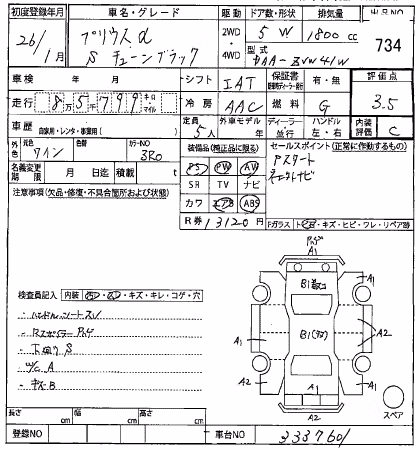 初度登録年月 車名・グレード 駆動 ドア数・形状 排気量 出品NO
26/1月 プリウスα S チューンブラック 2WD・4WD 5 W 1800 cc 734
型式 DAA-ZVW41W
車検 年 月 シフト IAT 保証書 有・無 評価点
走行 8万5千799 キロ・マイル 冷房 AAC 燃料 G 3.5
車歴 自家用・レンタ・事業用( ) 定員 5人 外車モデル 年 ディーラー・並行 ハンドル 左・右 内装評価 C
外色 元色 ワイン 色替 カラーNO 3R0
装備品(純正品に限る) セールスポイント(正常に作動するもの)
名義変更期限 月 日迄 積載 t
PS PW AW
SR TV ナビ
カワ エアB ABS
アスタート
注意事項(欠品・修復・不具合箇所および状態)
R券 13120 円 Fガラス
キズ・ヒビ・ワレ・リペア跡
A1
B1
A1 A1
A1 A2
A2 A2
A1
A2
スペア
検査員記入 内装
・キズ・キレ・コゲ・穴
ハンドル
下回りS
W/C A
キズB
長さ cm 幅 cm 高さ cm
登録NO 車台NO 333760